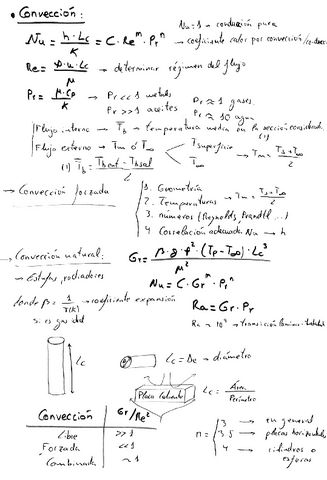 • Convección:
Nu=1 → conducción pura
Nu = h·Lc/K = C·Re^m·Pr^n → coeficiente calor por convección
Re = ρ·u·Lc/μ → determinar régimen del flujo
Pr = μ·Cp/K → Pr << 1 metals Pr ≈ 1 gases
Pr >> 1 aceites Pr ≈ 10 agua
Flujo interno → Tb → temperatura media en la sección considerada
Flujo externo → Tm ó T∞ T superficie
T∞ → Tm = Ts+T∞/2
→ Convección forzada
1. Geometría
2. Temperaturas → Tm = Ts+T∞/2
3. números (Reynolds, Prandtl ...)
4. Correlación adecuada Nu → h
→ Convección natural:
→ Estufas, radiadores
Gr = β·g·ρ²·(Tp-T∞)·Lc³/μ²
Nu = C·Gr^m·Pr^n
donde β = 1/T(K) → coeficiente expansión
si es gas ideal
Ra = Gr·Pr
Lc
Lc = De → diámetro
Placa caliente
Lc = Área/Perímetro
Convección Gr/Re²
Libre >> 1
Forzada << 1
Combinada ~ 1
n = 3 → en general
3.5 → placas horizontales
4 → cilindros o esferas